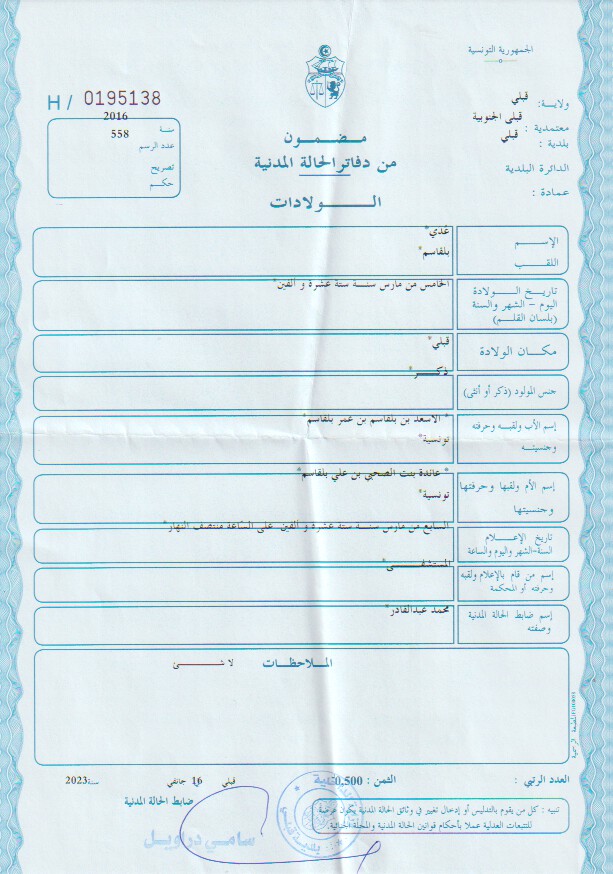 الجمهورية التونسية
H / 0195138
ولاية: قبلي
معتمدية : قبلي الجنوبية
بلدية : قبلي
الدائرة البلدية
عمادة :
سنة 2016
عدد الرسم 558
تصريح
حكم
مضمون
من دفاتر الحالة المدنية
الولادات
الإسم عُدي*
اللقب بلقاسم*
تاريخ الولادة الخامس من مارس سنة ستة عشرة و ألفين*
اليوم - الشهر والسنة
(بلسان القلم)
مكان الولادة قبلي*
جنس المولود (ذكر أو أنثى) ذكر*
إسم الأب ولقبه وحرفته * الاسعد بن بلقاسم بن عمر بلقاسم*
وجنسيته تونسية*
إسم الأم ولقبها وحرفتها * عائدة بنت الصحبي بن علي بلقاسم*
وجنسيتها تونسية*
تاريخ الإعلام السابع من مارس سنة ستة عشرة و ألفين على الساعة منتصف النهار*
السنة-الشهر واليوم والساعة
إسم من قام بالإعلام ولقبه المستشفى*
وحرفته أو المحكمة
إسم ضابط الحالة المدنية محمد عبدالقادر*
وصفته
الملاحظات لا شئ
المطبعة الرسمية
العدد الرتبي :
الثمن : 0,500
قبلي 16 جانفي سنة 2023
ضابط الحالة المدنية
تنبيه : كل من يقوم بالتدليس أو إدخال تغيير في وثائق الحالة المدنية يكون عرضة
للتتبعات العدلية عملا بأحكام قوانين الحالة المدنية والمجلة الجنائية.
سامي دراويل
بلدية قبلي